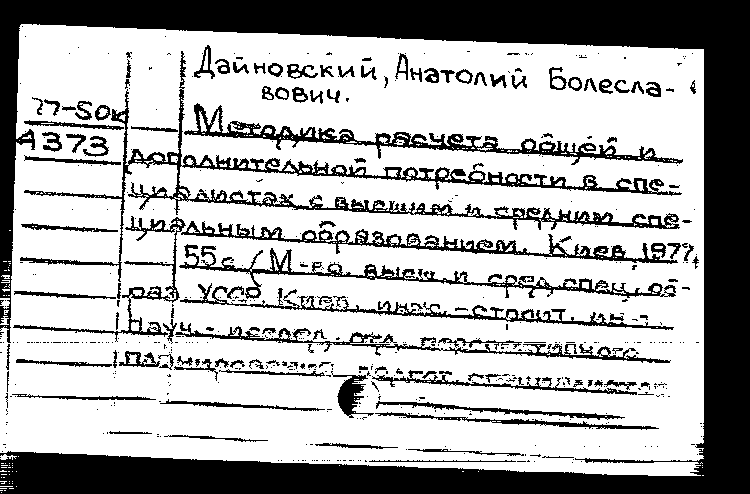 Дайновский, Анатолий Болесла-
вович.
77-50к
4373
Методика расчета общей и
дополнительной потребности в спе-
циалистах с высшим и средним спе-
циальным образованием. Киев, 1977.
55 с. (М-во высш. и сред. спец. об-
раз. УССР. Киев. инж.-строит. ин-т.
Науч.-исслед. отд. перспективного
планирования подгот. специалистов